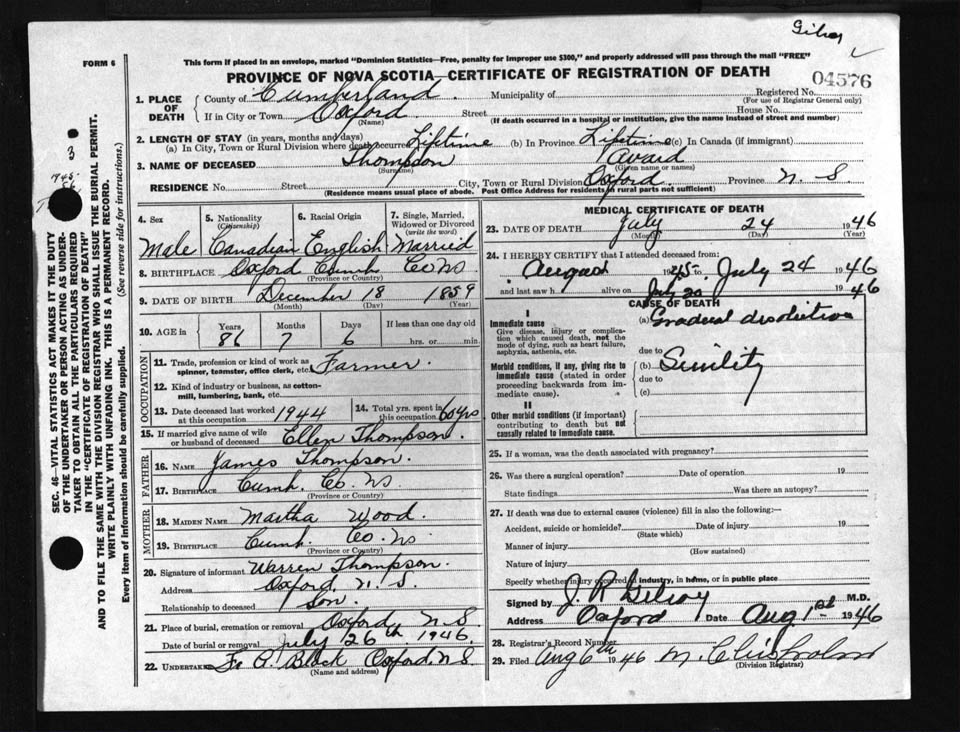 Gilroy
This form if placed in an envelope, marked "Dominion Statistics—Free, penalty for improper use $300," and properly addressed will pass through the mail "FREE"
FORM 6
PROVINCE OF NOVA SCOTIA—CERTIFICATE OF REGISTRATION OF DEATH
04576
1. PLACE OF DEATH
County of Cumberland. Municipality of Registered No.
(For use of Registrar General only)
If in City or Town Oxford Street House No.
(Name) (If death occurred in a hospital or institution, give the name instead of street and number)
2. LENGTH OF STAY (in years, months and days)
(a) In City, Town or Rural Division where death occurred Lifetime (b) In Province Lifetime (c) In Canada (if immigrant)
3. NAME OF DECEASED Thompson Avard
(Surname) (Given name or names)
RESIDENCE No. Street City, Town or Rural Division Oxford. Province N. S.
(Residence means usual place of abode. Post Office Address for residents in rural parts not sufficient)
4. Sex 5. Nationality (Citizenship) 6. Racial Origin 7. Single, Married, Widowed or Divorced (write the word)
Male Canadian English Married
8. BIRTHPLACE Oxford Cumb Co NS
(Province or Country)
9. DATE OF BIRTH December 18 1859
(Month) (Day) (Year)
10. AGE in Years Months Days If less than one day old
86 7 6 hrs. or min.
OCCUPATION
11. Trade, profession or kind of work as spinner, teamster, office clerk, etc. Farmer.
12. Kind of industry or business, as cotton-mill, lumbering, bank, etc.
13. Date deceased last worked at this occupation 1944 14. Total yrs. spent in this occupation 60 yrs
15. If married give name of wife or husband of deceased Ellen Thompson.
FATHER
16. NAME James Thompson.
17. BIRTHPLACE Cumb. Co. NS
(Province or Country)
MOTHER
18. MAIDEN NAME Martha Wood.
19. BIRTHPLACE Cumb. Co. NS
(Province or Country)
20. Signature of informant Warren Thompson.
Address Oxford, N. S.
Relationship to deceased Son.
21. Place of burial, cremation or removal Oxford, N.S.
Date of burial or removal July 26th 1946.
22. UNDERTAKER Black Oxford, N.S.
(Name and address)
MEDICAL CERTIFICATE OF DEATH
23. DATE OF DEATH July 24 1946
(Month) (Day) (Year)
24. I HEREBY CERTIFY that I attended deceased from:
August 1945 to July 24 1946
and last saw h alive on July 20 1946
CAUSE OF DEATH
I
Immediate cause (a) Gradual disolution
Give disease, injury or complication which caused death, not the mode of dying, such as heart failure, asphyxia, asthenia, etc.
due to
Morbid conditions, if any, giving rise to immediate cause (stated in order proceeding backwards from immediate cause).
(b) Senility
due to
(c)
II
Other morbid conditions (if important) contributing to death but not causally related to immediate cause.
25. If a woman, was the death associated with pregnancy?
26. Was there a surgical operation? Date of operation 19
State findings Was there an autopsy?
27. If death was due to external causes (violence) fill in also the following:—
Accident, suicide or homicide? Date of injury 19
(State which)
Manner of injury
(How sustained)
Nature of injury
Specify whether injury occurred in industry, in home, or in public place
Signed by J. R. Gilroy M.D.
Address Oxford Date Aug 1st 1946
28. Registrar's Record Number
29. Filed Aug 6th 1946 M. Chisholm
(Division Registrar)
SEC. 46—VITAL STATISTICS ACT MAKES IT THE DUTY
OF THE UNDERTAKER OR PERSON ACTING AS UNDERTAKER
TO OBTAIN ALL THE PARTICULARS REQUIRED
IN THE "CERTIFICATE OF REGISTRATION OF DEATH"
AND TO FILE THE SAME WITH THE DIVISION REGISTRAR WHO SHALL ISSUE THE BURIAL PERMIT.
WRITE PLAINLY WITH UNFADING INK. THIS IS A PERMANENT RECORD.
Every item of information should be carefully supplied. (See reverse side for instructions.)